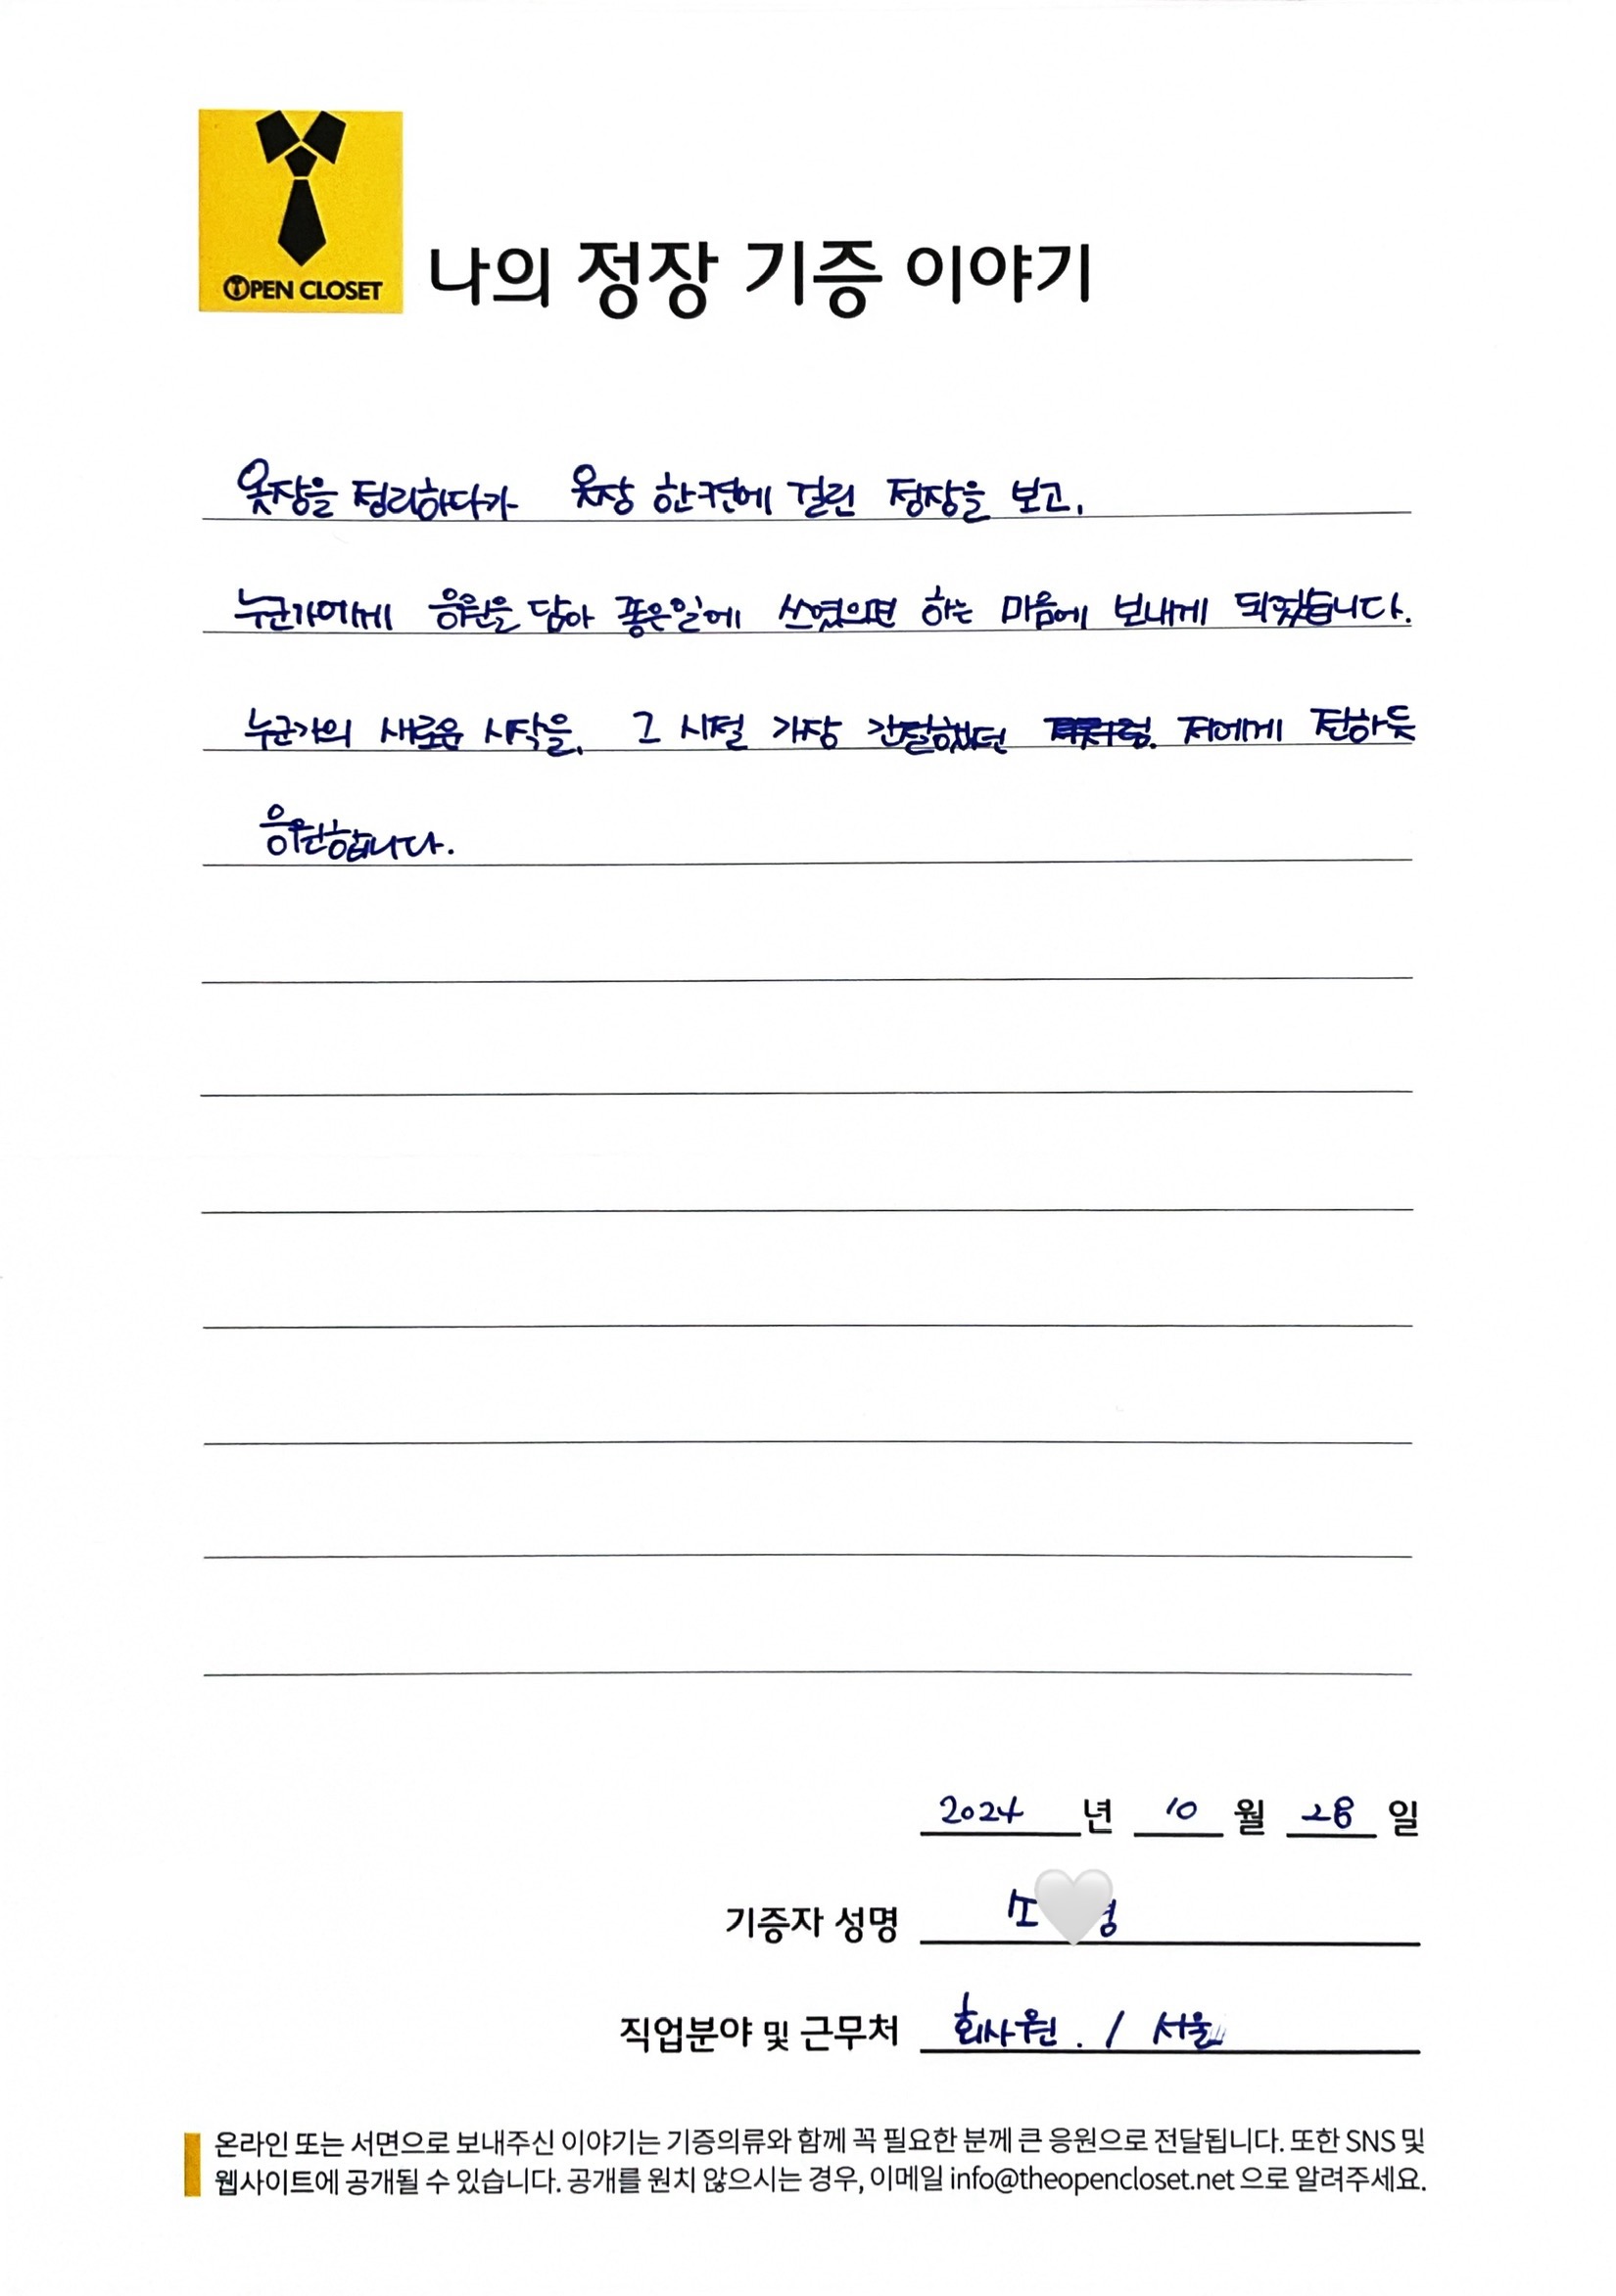 OPEN CLOSET
나의 정장 기증 이야기
옷장을 정리하다가 옷장 한켠에 걸린 정장을 보고,
누군가에게 응원을 담아 좋은일에 쓰였으면 하는 마음에 보내게 되었습니다.
누군가의 새로운 시작을, 그 시절 가장 간절했던 저에게 전하듯
응원합니다.
2024 년 10 월 28 일
기증자 성명 조 영
직업분야 및 근무처 회사원. / 서울
온라인 또는 서면으로 보내주신 이야기는 기증의류와 함께 꼭 필요한 분께 큰 응원으로 전달됩니다. 또한 SNS 및
웹사이트에 공개될 수 있습니다. 공개를 원치 않으시는 경우, 이메일 info@theopencloset.net 으로 알려주세요.